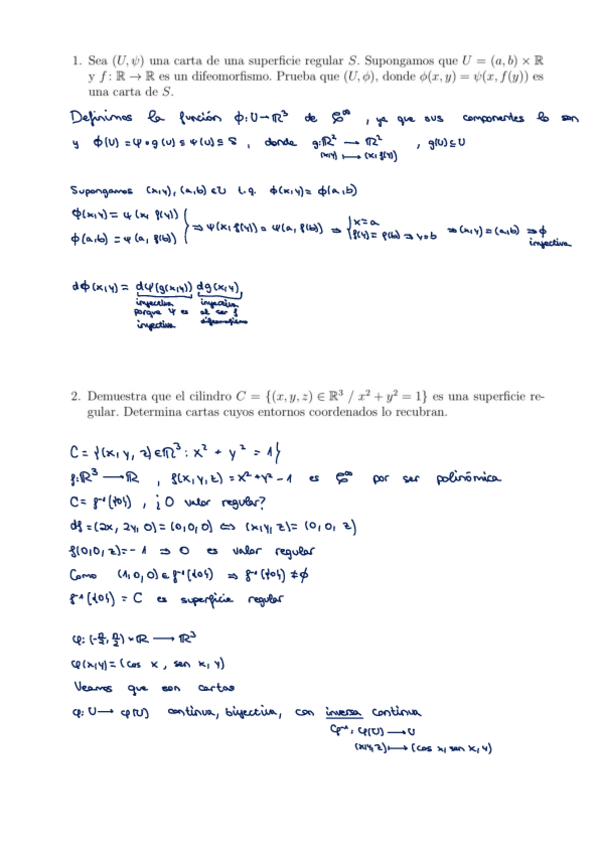 1. Sea (U, ψ) una carta de una superficie regular S. Supongamos que U = (a, b) × ℝ
y f : ℝ → ℝ es un difeomorfismo. Prueba que (U, ϕ), donde ϕ(x, y) = ψ(x, f(y)) es
una carta de S.
Definimos la función ϕ: U→ℝ³ de 𝒞^∞, ya que sus componentes lo son
y ϕ(U) = ψ∘g(U) ⊆ ψ(U) ⊆ S, donde g: ℝ² → ℝ², g(U) ⊆ U
(x,y) ⟼ (x, f(y))
Supongamos (x,y), (a,b) ∈ U t.q. ϕ(x,y) = ϕ(a,b)
ϕ(x,y) = ψ(x, f(y))
ϕ(a,b) = ψ(a, f(b)) } ⇒ ψ(x, f(y)) = ψ(a, f(b)) ⇒ { x=a
f(y) = f(b) ⇒ y=b ⇒ (x,y) = (a,b) ⇒ ϕ
inyectiva
dϕ(x,y) = dψ(g(x,y)) dg(x,y)
inyectiva inyectiva
porque ψ es al ser f
inyectiva difeomorfismo
2. Demuestra que el cilindro C = {(x, y, z) ∈ ℝ³ / x² + y² = 1} es una superficie re-
gular. Determina cartas cuyos entornos coordenados lo recubran.
C = {(x, y, z) ∈ ℝ³ : x² + y² = 1}
f: ℝ³ → ℝ, f(x, y, z) = x² + y² - 1 es 𝒞^∞ por ser polinómica
C = f⁻¹({0}), ¿0 valor regular?
df = (2x, 2y, 0) = (0,0,0) ⇔ (x,y,z) = (0,0,z)
f(0,0,z) = -1 ⇒ 0 es valor regular
Como (1,0,0) ∈ f⁻¹({0}) ⇒ f⁻¹({0}) ≠ ∅
f⁻¹({0}) = C es superficie regular
φ: (-π/2, π/2) × ℝ → ℝ³
φ(x,y) = (cos x, sen x, y)
Veamos que son cartas
φ: U → φ(U) continua, biyectiva, con inversa continua
φ⁻¹: φ(U) → U
(x,y,z) ⟼ (cos x, sen x, y)